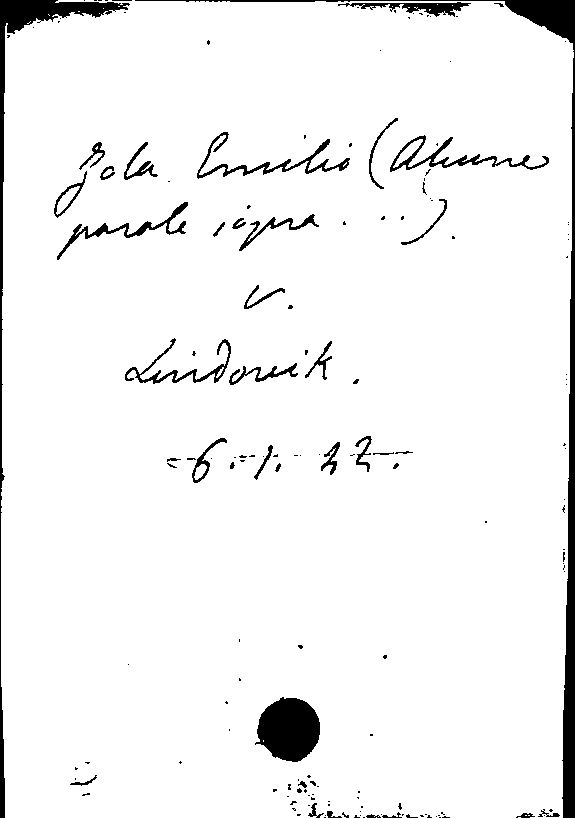 Zola Emilio (Alcune
parole sopra ...).
v.
Lindovik.
6.1.22.